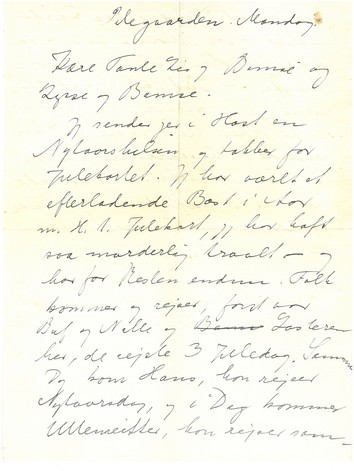 Pilegaarden. Mandag.
Kære Tante Lis og Bamse og
Lysse og Bamse.
Jeg sender jer i Hast en
Nytaarshilsen og takker for
Julekortet. Jeg har været et
efterladende Bæst i Aar
m. H. t. Julekort, jeg har haft
saa morderlig travlt – og
har for Resten endnu. Folk
kommer og rejser, først var
Buf og Nille og Gasteren
her, de rejste 3 Juledag. Samme
Dag kom Hans, han rejser
Nytaarsdag, og i Dag kommer
Ullemeitter, hun rejser sam-